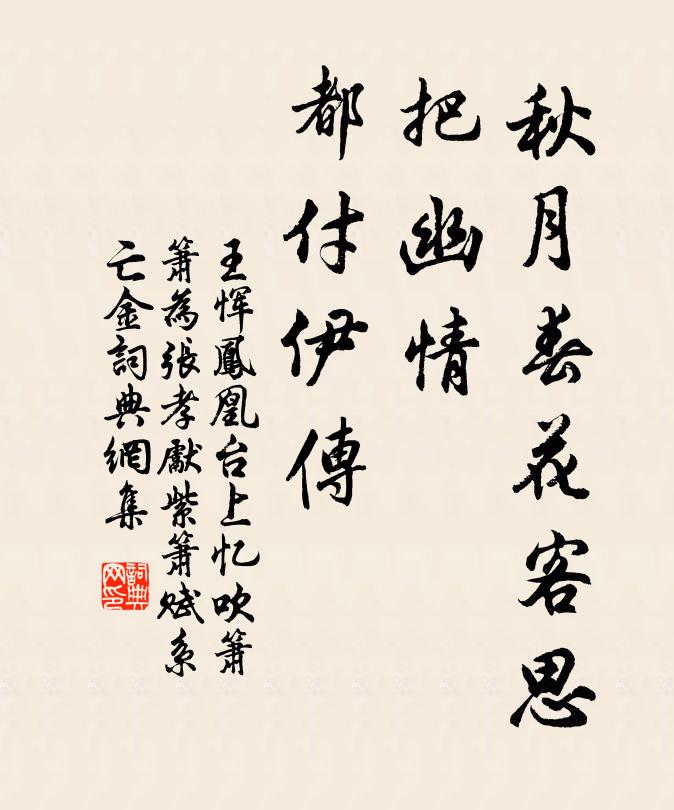 秋月春花客思
把幽情
都付伊傳
王惲鳳凰台上忆吹簫
簫為張孝獻紫簫賦系
亡金詞典網集
詞典
网印